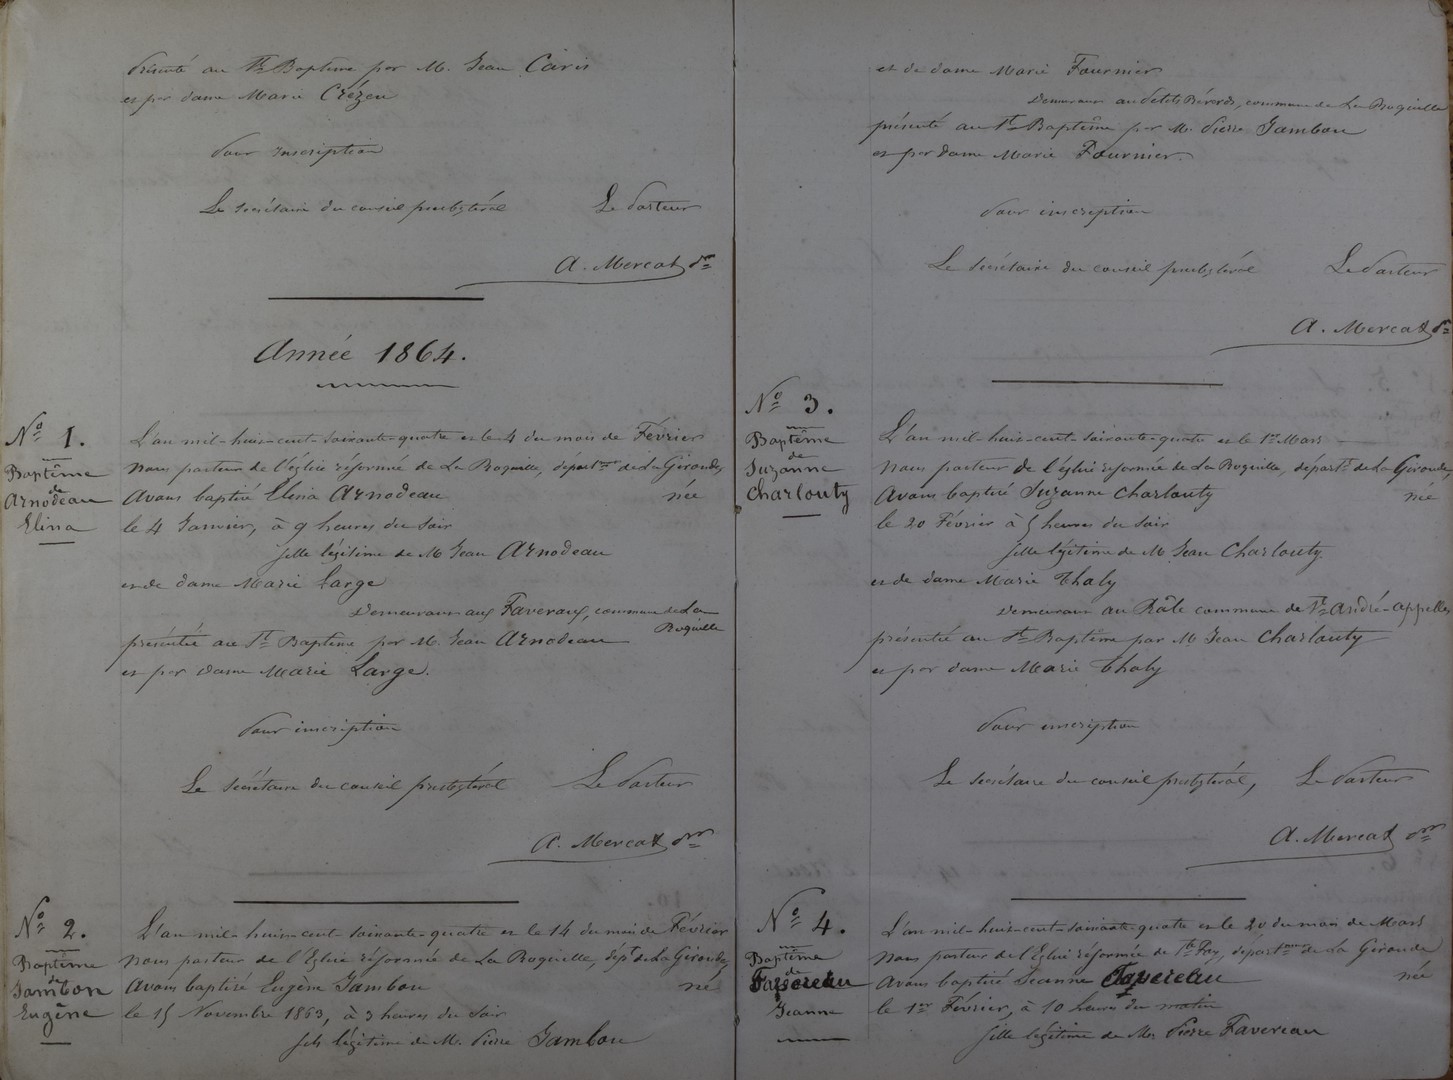 présenté au St Baptême par M. Jean Caris
et par dame Marie Crézeu
Pour inscription
Le secrétaire du conseil presbytéral Le Pasteur
A. Mercat pr
Année 1864.
No 1.
Baptême
de
Arnodeau
Elina
L'an mil-huit-cent-soixante-quatre et le 4 du mois de Février
Nous pasteur de l'église réformée de La Roquille, départment de La Gironde,
Avons baptisé Elina Arnodeau née
le 4 Janvier, à 9 heures du soir
fille légitime de M. Jean Arnodeau
et de dame Marie Large
Demeurant aux Faveraux, commune de La
Roquille
présentée au St Baptême par M. Jean Arnodeau
et par dame Marie Large.
Pour inscription
Le secrétaire du conseil presbytéral Le Pasteur
A. Mercat pr
No 2.
Baptême
de
Jambon
Eugène
L'an mil-huit-cent-soixante-quatre et le 14 du mois de Février
Nous pasteur de l'Eglise réformée de La Roquille, dépt de La Gironde,
Avons baptisé Eugène Jambon né
le 15 Novembre 1863, à 3 heures du soir
fils légitime de M. Pierre Jambon
et de dame Marie Fournier
Demeurant au Petits Bérards, commune de La Roquille
présenté au St Baptême par M. Pierre Jambon
et par dame Marie Fournier.
Pour inscription
Le secrétaire du conseil presbytéral Le Pasteur
A. Mercat pr
No 3.
Baptême
de
Suzanne
Charlouty
L'an mil-huit-cent-soixante-quatre et le 1er Mars
Nous pasteur de l'église réformée de La Roquille, départt de La Gironde,
Avons baptisé Suzanne Charlouty née
le 20 Février à 5 heures du soir
fille légitime de M. Jean Charlouty
et de dame Marie Thaly
Demeurant au Râle commune de St André-Appelles
présentée au St Baptême par M. Jean Charlouty
et par dame Marie Thaly
Pour inscription
Le secrétaire du conseil presbytéral, Le Pasteur
A. Mercat pr
No 4.
Baptême
de
Favereau
Jeanne
L'an mil-huit-cent-soixante-quatre et le 20 du mois de Mars
Nous pasteur de l'Eglise réformée de Ste Foy, départment de la Gironde
Avons baptisé Jeanne Favereau née
le 1er Février, à 10 heures du matin
fille légitime de Mr Pierre Favereau